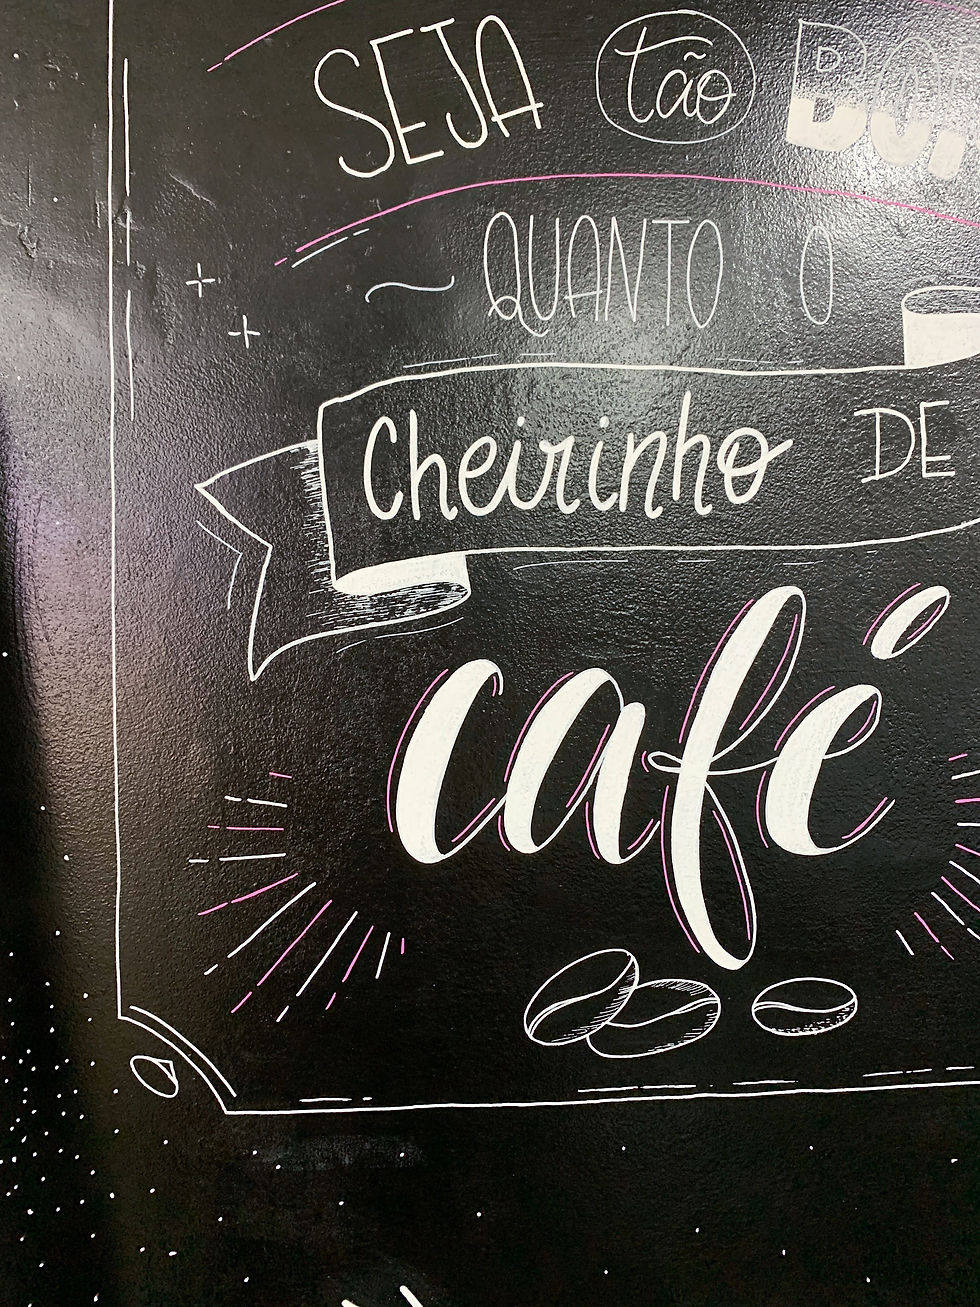 SEJA tão BOM
QUANTO O
Cheirinho DE
café